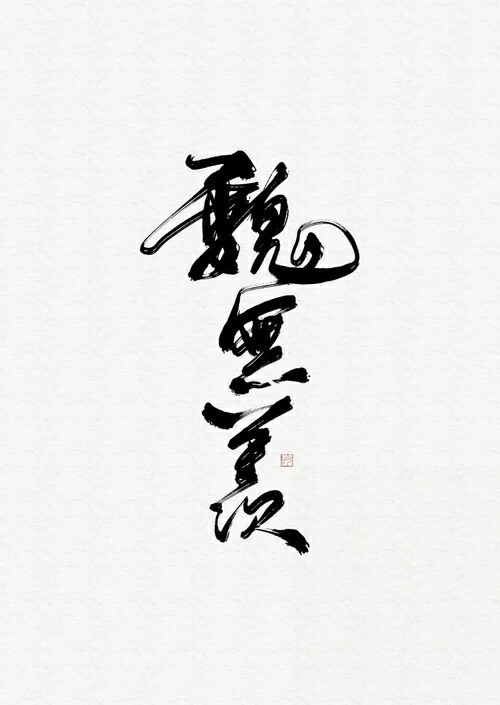 魏無羨